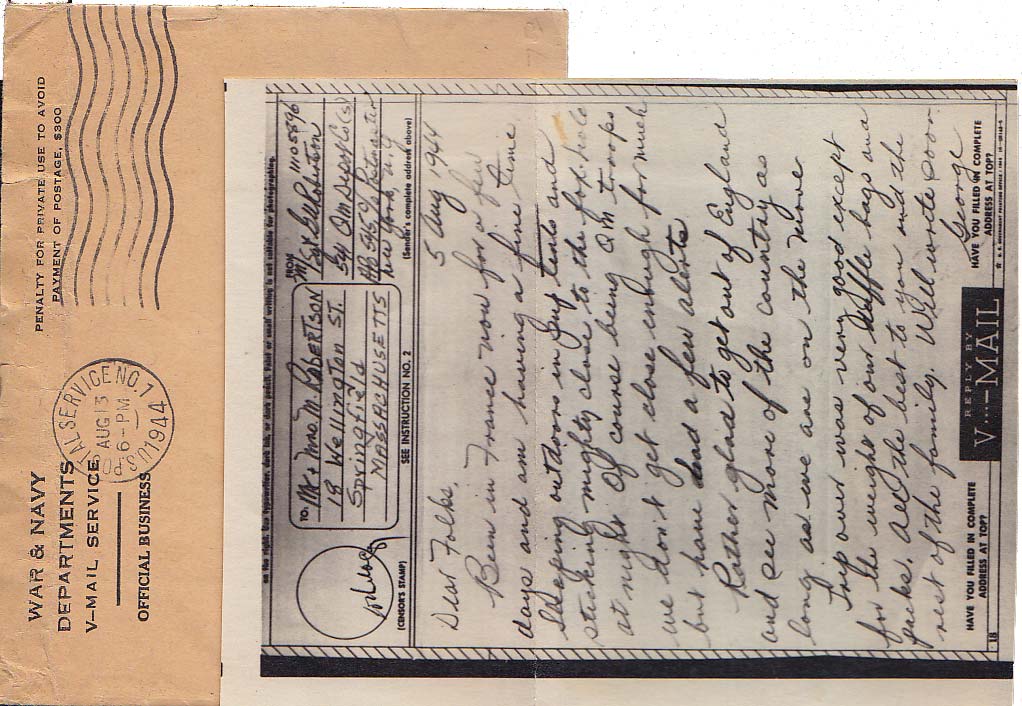 WAR & NAVY
DEPARTMENTS
V—MAIL SERVICE
OFFICIAL BUSINESS
PENALTY FOR PRIVATE USE TO AVOID
PAYMENT OF POSTAGE, $300
U.S. POSTAL SERVICE NO. 1
AUG 13
6-PM
1944
TO:
Mr & Mrs. M. ROBERTSON
18 Wellington ST.
Springfield
MASSACHUSETTS
FROM
M/Sgt G. Robertson 11105896
54 QM
New York, N.Y.
(CENSOR'S STAMP)
SEE INSTRUCTION NO. 2
(Sender's complete address above)
5 Aug 1944
Dear Folks,
Been in France now for a few
days and am having a fine time
sleeping outdoors in pup tents and
sticking mighty close to the fox hole
at night. Of course being QM troops
we don't get close enough for much
but have had a few alerts
Rather glad to get out of England
and see more of the country as
long as we are on the move
Trip over was very good except
for the weight of our duffle bags and
packs. All the best to you and the
rest of the family. Will write soon
George
HAVE YOU FILLED IN COMPLETE
ADDRESS AT TOP?
REPLY BY
V...—MAIL
HAVE YOU FILLED IN COMPLETE
ADDRESS AT TOP?
18